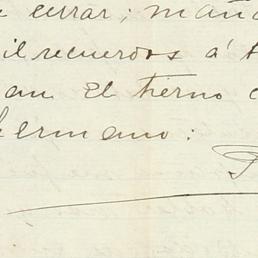 e cerrar; maña
il recuerdos á t
an El tierno c
hermano:
P